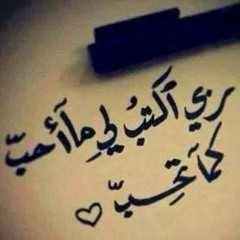 ربي اكتبُ لي مِا أحبّ
كمَا تحِبّ